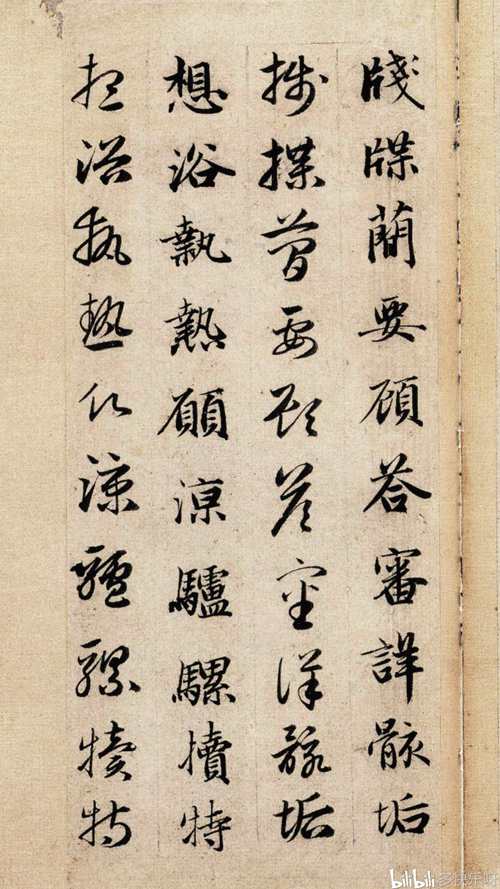 牋牒簡要顧答審詳骸垢
牋牒簡要顧答審詳骸垢
想浴執熱願涼驢騾犢特
想浴執熱願涼驢騾犢特
bilibili